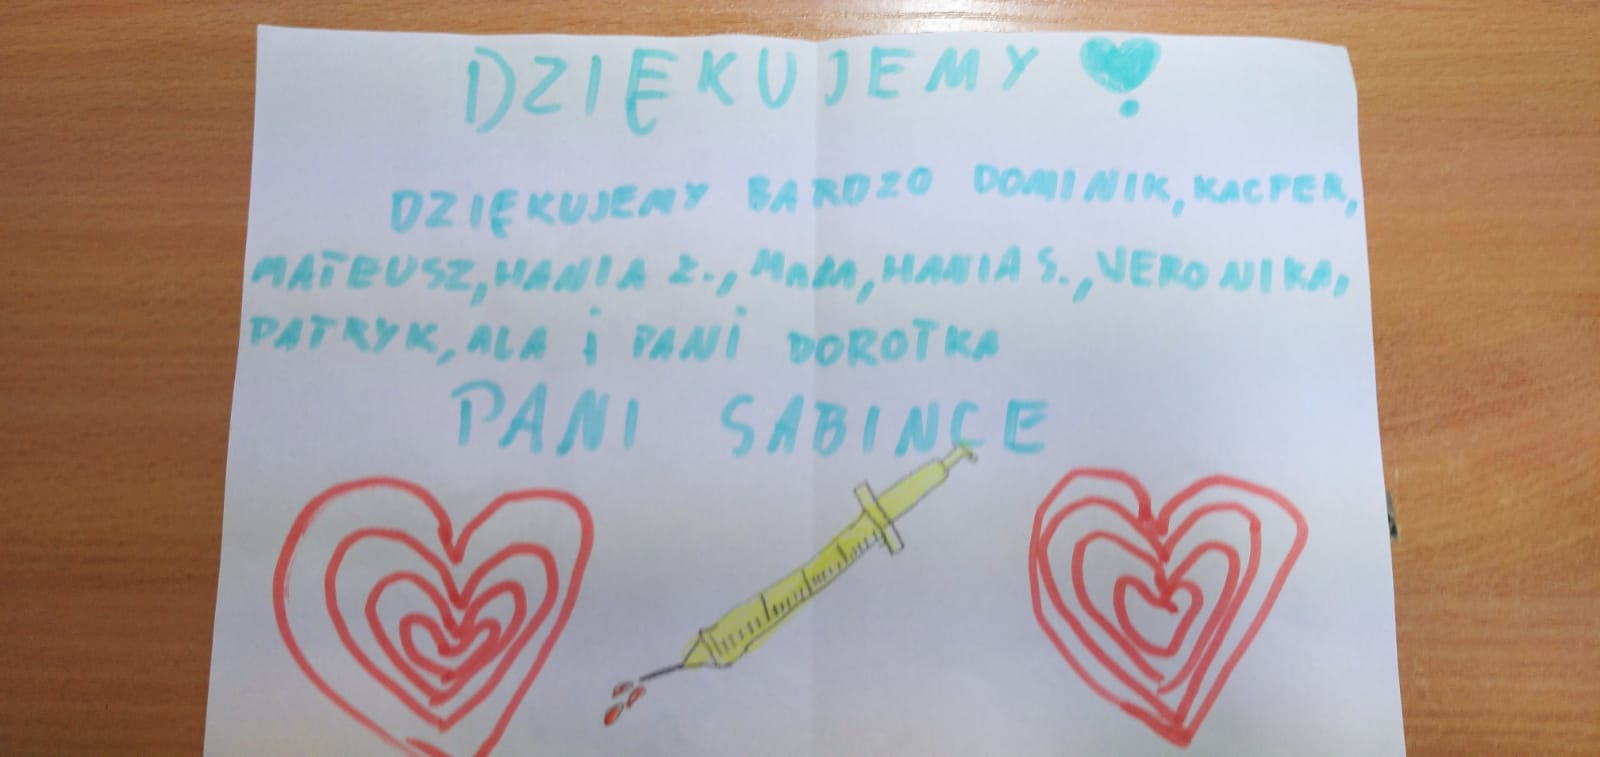 DZIĘKUJEMY
DZIĘKUJEMY BARDZO DOMINIK, KACPER,
MATEUSZ, HANIA Z., HANIA S., VERONIKA,
PATRYK, ALA i PANi DOROTKA
PANI SABINCE